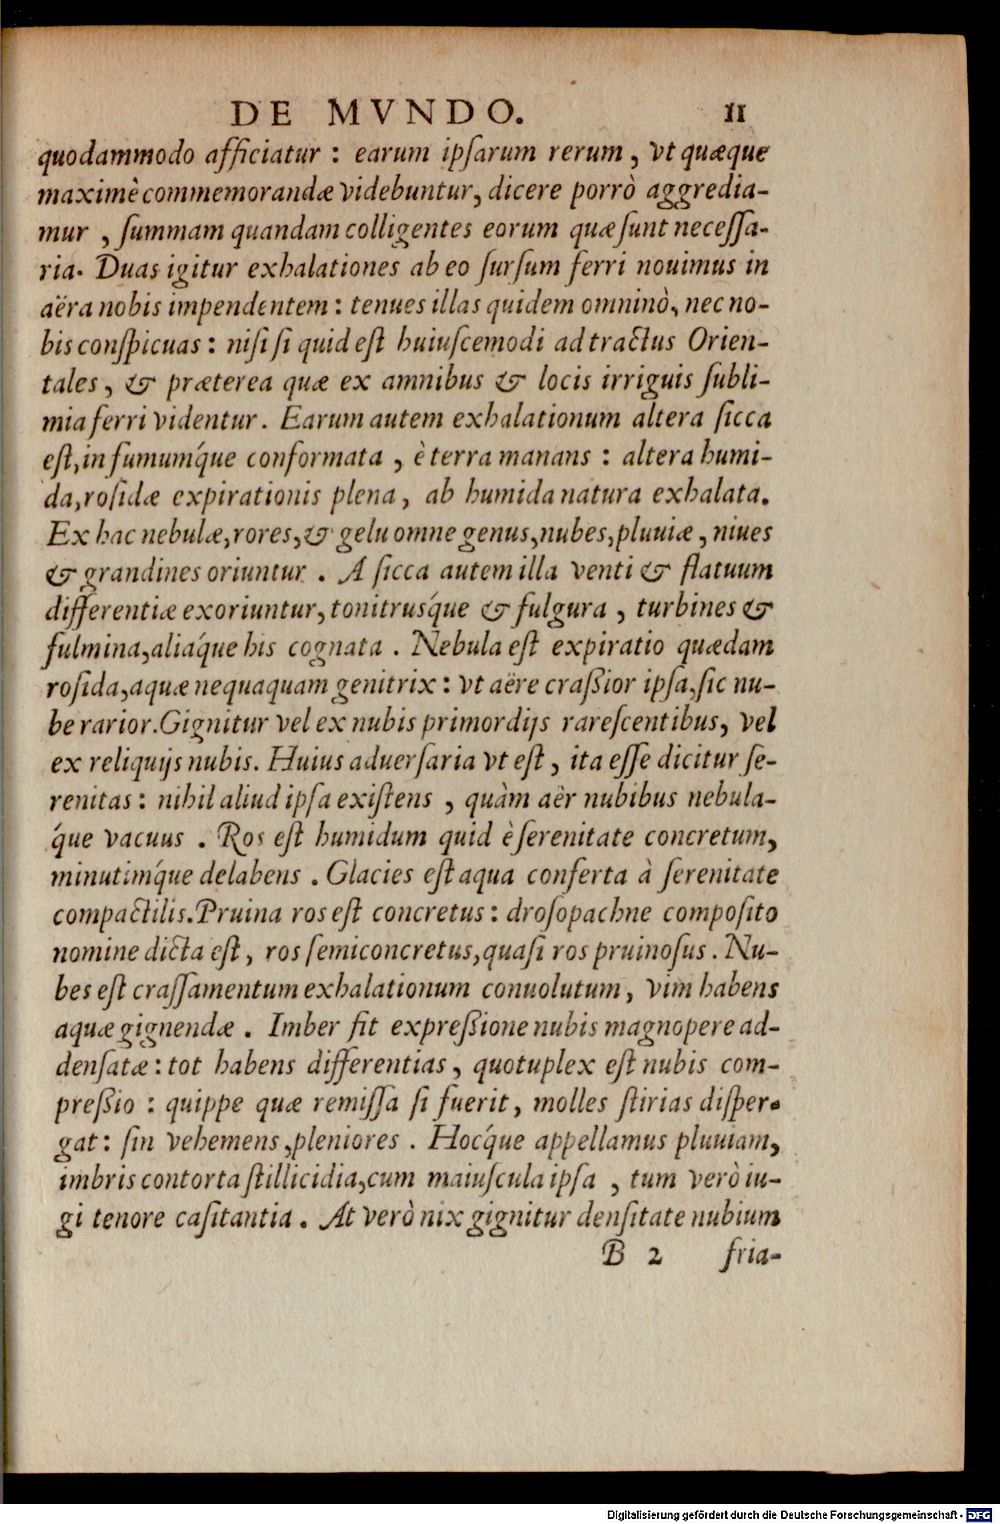 DE MVNDO. 11
quodammodo afficiatur : earum ipſarum rerum , vt quæque
maximè commemorandæ videbuntur, dicere porrò aggredia-
mur , ſummam quandam colligentes eorum quæ ſunt neceſſa-
ria. Duas igitur exhalationes ab eo ſurſum ferri nouimus in
aëra nobis impendentem : tenues illas quidem omninò, nec no-
bis conſpicuas : niſi ſi quid eſt huiuſcemodi ad tractus Orien-
tales , & præterea quæ ex amnibus & locis irriguis ſubli-
mia ferri videntur . Earum autem exhalationum altera ſicca
eſt, in fumumq́ue conformata , è terra manans : altera humi-
da, roſidæ expirationis plena , ab humida natura exhalata.
Ex hac nebulæ, rores, & gelu omne genus, nubes, pluuiæ , niues
& grandines oriuntur . A ſicca autem illa venti & flatuum
differentiæ exoriuntur, tonitrusq́ue & fulgura , turbines &
fulmina, aliaq́ue his cognata . Nebula eſt expiratio quædam
roſida, aquæ nequaquam genitrix : vt aëre craßior ipſa, ſic nu-
be rarior. Gignitur vel ex nubis primordijs rareſcentibus, vel
ex reliquijs nubis. Huius aduerſaria vt eſt , ita eſſe dicitur ſe-
renitas : nihil aliud ipſa exiſtens , quàm aër nubibus nebula-
q́ue vacuus . Ros eſt humidum quid è ſerenitate concretum,
minutimq́ue delabens . Glacies eſt aqua conferta à ſerenitate
compactilis. Pruina ros eſt concretus : droſopachne compoſito
nomine dicta eſt , ros ſemiconcretus, quaſi ros pruinoſus . Nu-
bes eſt craſſamentum exhalationum conuolutum , vim habens
aquæ gignendæ . Imber fit expreßione nubis magnopere ad-
denſatæ : tot habens differentias , quotuplex eſt nubis com-
preßio : quippe quæ remiſſa ſi fuerit , molles ſtirias diſper-
gat : ſin vehemens , pleniores . Hocq́ue appellamus pluuiam,
imbris contorta ſtillicidia, cum maiuſcula ipſa , tum verò iu-
gi tenore caſitantia . At verò nix gignitur denſitate nubium
B 2 fria-
Digitalisierung gefördert durch die Deutsche Forschungsgemeinschaft - DFG